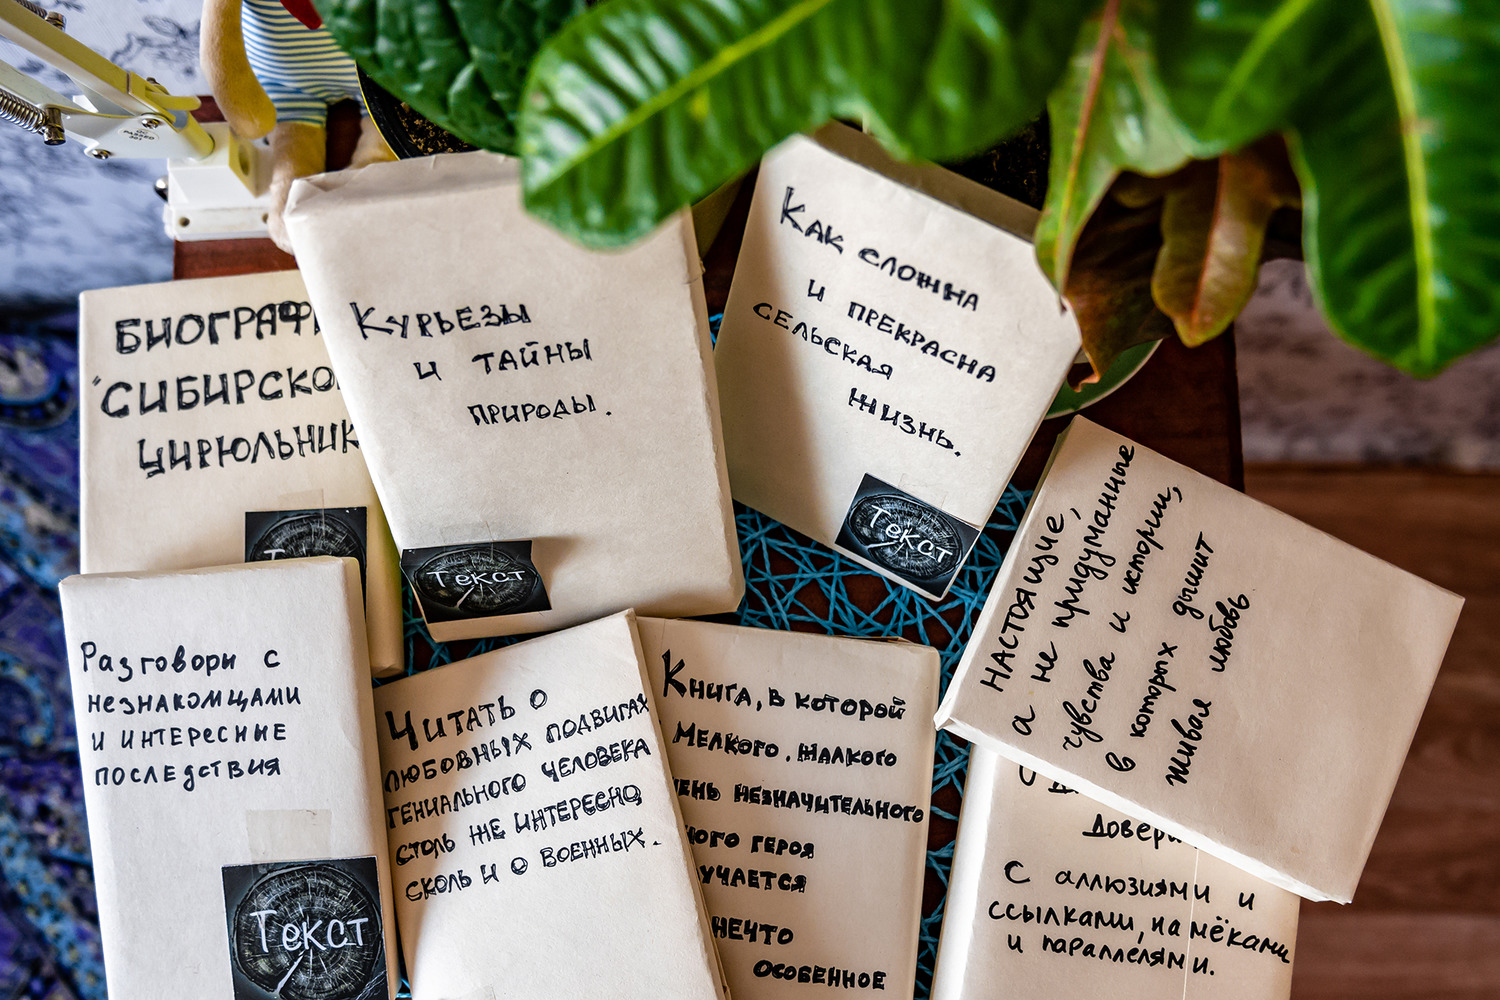 БИОГРАФ
"СИБИРСКО
ЦИРЮЛЬНИК
Курьезы
и тайны
природы.
Текст
Как сложна
и прекрасна
сельская
жизнь.
Текст
Настоящие,
а не придуманные
чувства и истории,
в которых дышит
живая любовь
Разговоры с
незнакомцами
и интересные
последствия
Текст
Читать о
любовных подвигах
гениального человека
столь же интересно,
сколь и о военных.
Книга, в которой
мелкого, жалкого
чень незначительного
ного героя
учается
нечто
особенное
Довери
С аллюзиями и
ссылками, намёками
и параллелями.